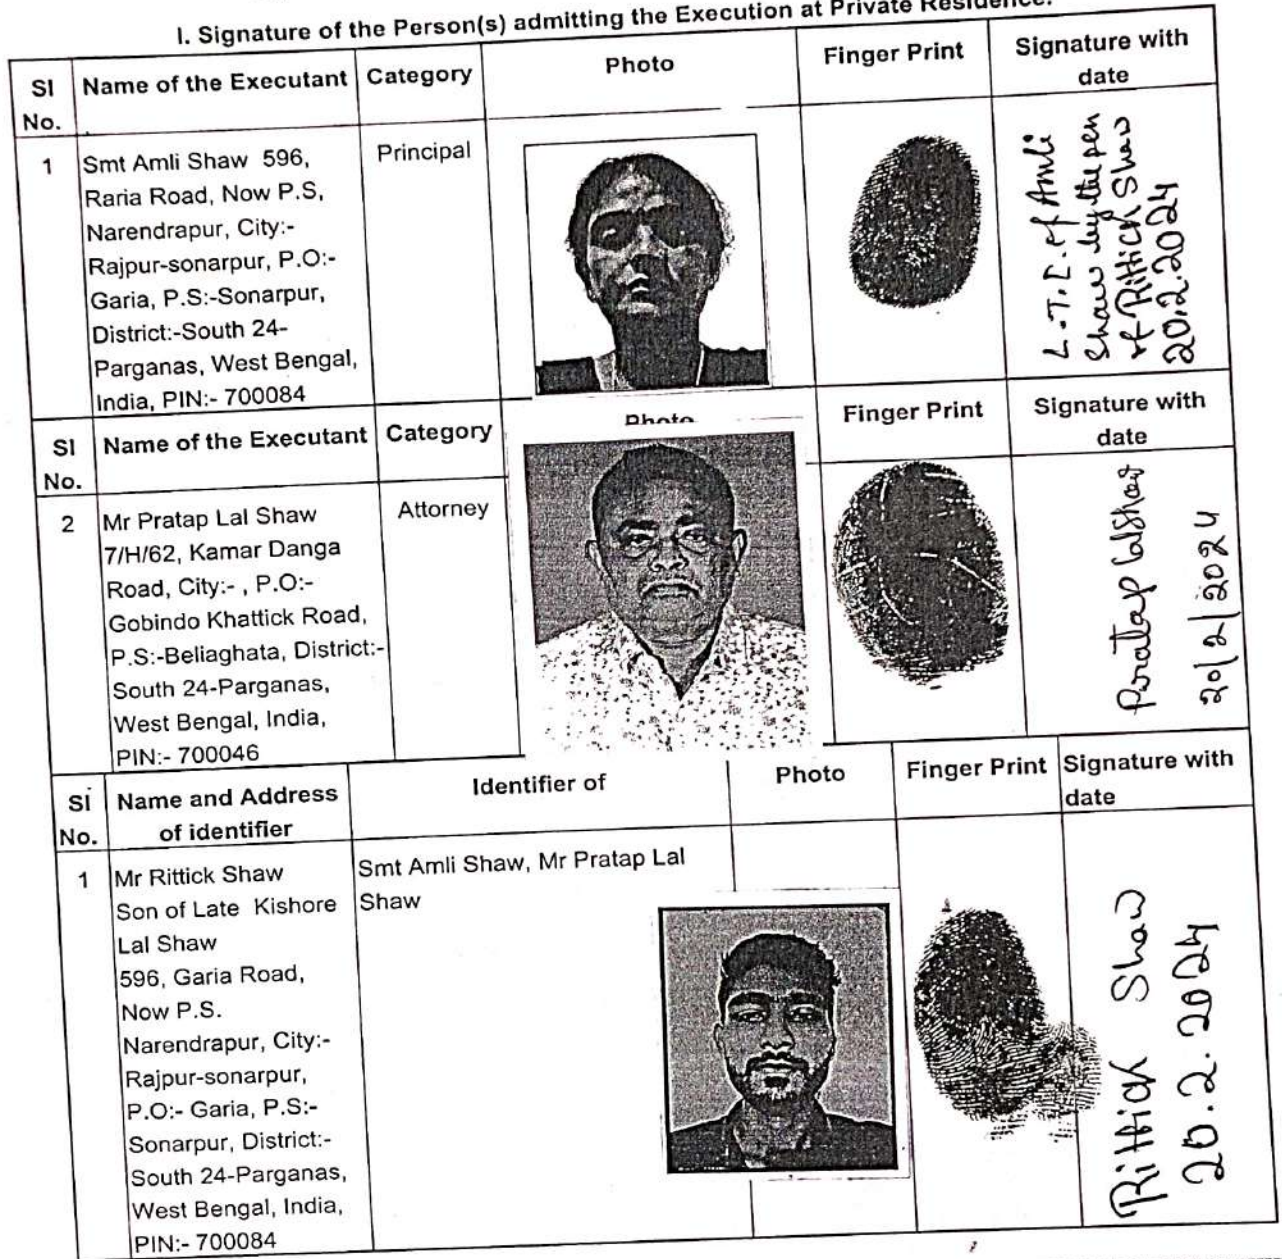 I. Signature of the Person(s) admitting the Execution at Private Residence.
Sl No. Name of the Executant Category Photo Finger Print Signature with date
1 Smt Amli Shaw 596,
Raria Road, Now P.S,
Narendrapur, City:-
Rajpur-sonarpur, P.O:-
Garia, P.S:-Sonarpur,
District:-South 24-
Parganas, West Bengal,
India, PIN:- 700084
Principal
L.T.I. of Amli
Shaw by the pen
of Rittick Shaw
20.2.2024
Sl No. Name of the Executant Category Photo Finger Print Signature with date
2 Mr Pratap Lal Shaw
7/H/62, Kamar Danga
Road, City:- , P.O:-
Gobindo Khattick Road,
P.S:-Beliaghata, District:-
South 24-Parganas,
West Bengal, India,
PIN:- 700046
Attorney
Pratap Lal Shaw
20/2/2024
Sl No. Name and Address of identifier Identifier of Photo Finger Print Signature with date
1 Mr Rittick Shaw
Son of Late Kishore
Lal Shaw
596, Garia Road,
Now P.S.
Narendrapur, City:-
Rajpur-sonarpur,
P.O:- Garia, P.S:-
Sonarpur, District:-
South 24-Parganas,
West Bengal, India,
PIN:- 700084
Smt Amli Shaw, Mr Pratap Lal
Shaw
Rittick Shaw
20.2.2024